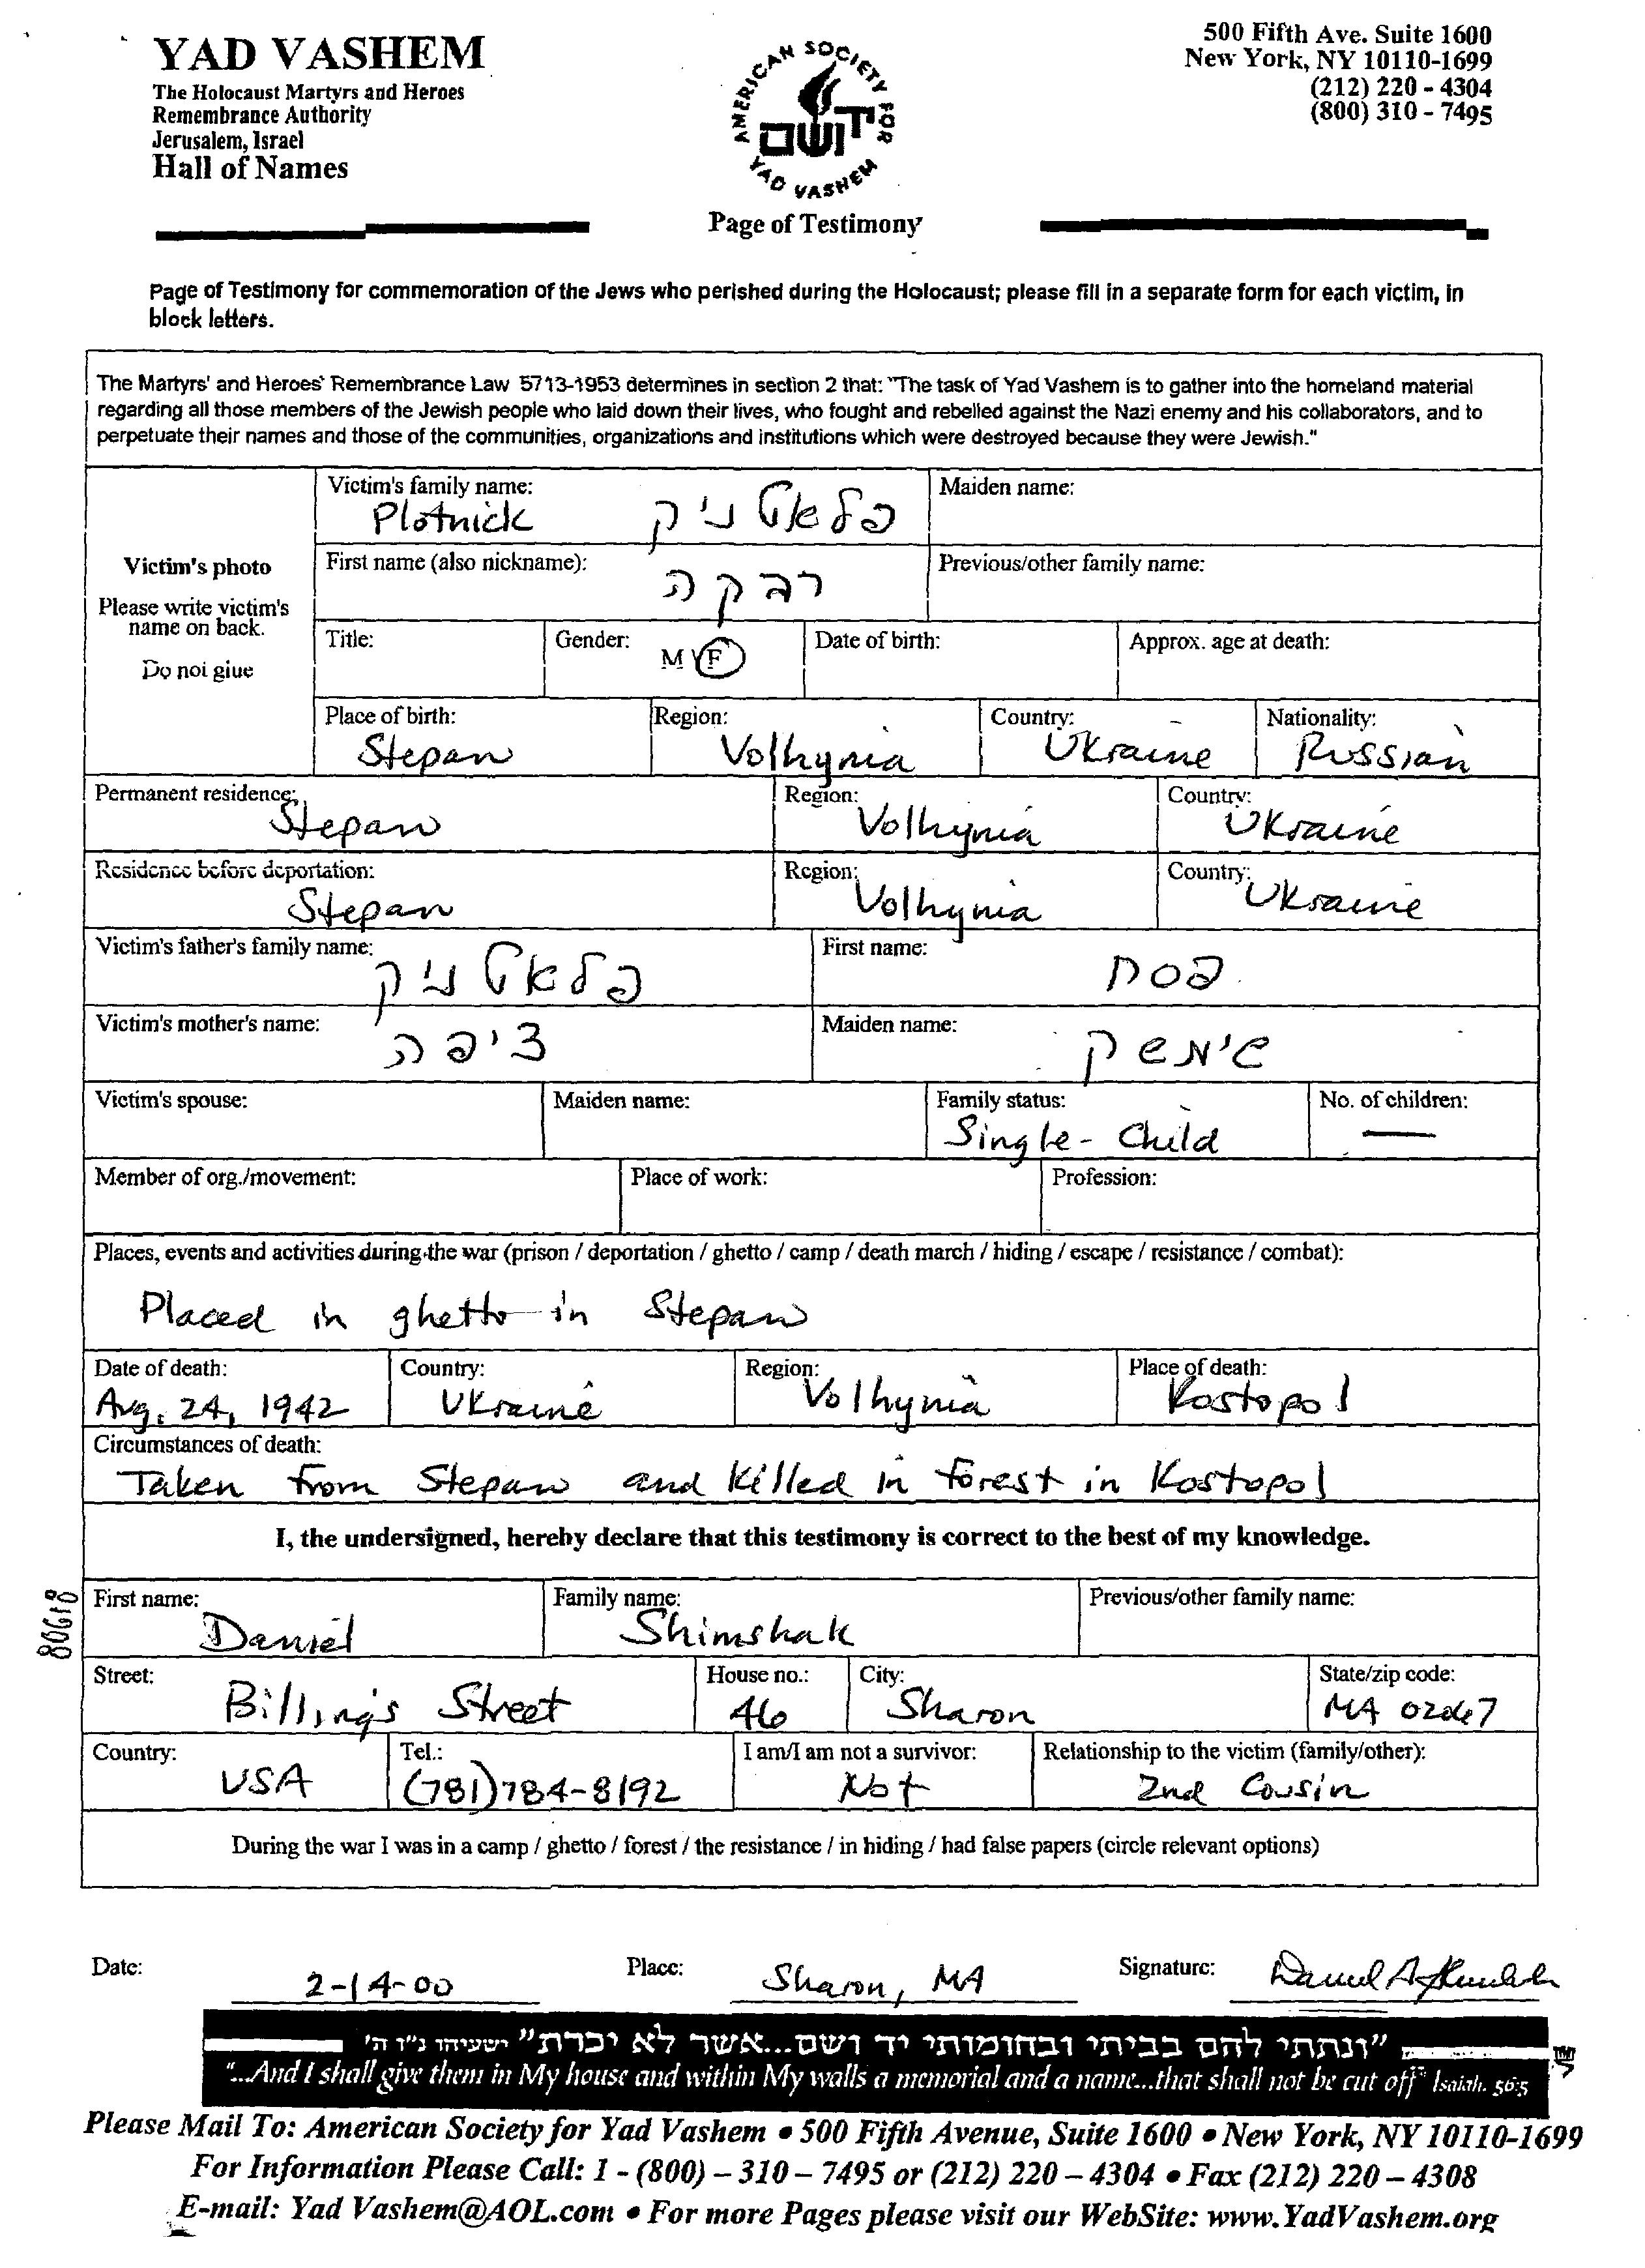 YAD VASHEM
The Holocaust Martyrs and Heroes
Remembrance Authority
Jerusalem, Israel
Hall of Names
AMERICAN SOCIETY FOR
יד ושם
YAD VASHEM
Page of Testimony
500 Fifth Ave. Suite 1600
New York, NY 10110-1699
(212) 220 - 4304
(800) 310 - 7495
Page of Testimony for commemoration of the Jews who perished during the Holocaust; please fill in a separate form for each victim, in
block letters.
The Martyrs' and Heroes' Remembrance Law 5713-1953 determines in section 2 that: "The task of Yad Vashem is to gather into the homeland material
regarding all those members of the Jewish people who laid down their lives, who fought and rebelled against the Nazi enemy and his collaborators, and to
perpetuate their names and those of the communities, organizations and institutions which were destroyed because they were Jewish."
Victim's photo
Please write victim's
name on back.
Do not glue
Victim's family name:
Plotnick פלאטניק
Maiden name:
First name (also nickname):
רבקה
Previous/other family name:
Title:
Gender: M / F
Date of birth:
Approx. age at death:
Place of birth:
Stepan
Region:
Volhynia
Country:
Ukraine
Nationality:
Russian
Permanent residence:
Stepan
Region:
Volhynia
Country:
Ukraine
Residence before deportation:
Stepan
Region:
Volhynia
Country:
Ukraine
Victim's father's family name:
פלאטניק
First name:
פסח
Victim's mother's name:
ציפה
Maiden name:
שימשק
Victim's spouse:
Maiden name:
Family status:
Single - Child
No. of children:
—
Member of org./movement:
Place of work:
Profession:
Places, events and activities during the war (prison / deportation / ghetto / camp / death march / hiding / escape / resistance / combat):
Placed in ghetto in Stepan
Date of death:
Aug. 24, 1942
Country:
Ukraine
Region:
Volhynia
Place of death:
Kostopol
Circumstances of death:
Taken from Stepan and killed in forest in Kostopol
I, the undersigned, hereby declare that this testimony is correct to the best of my knowledge.
80618
First name:
Daniel
Family name:
Shimshak
Previous/other family name:
Street:
Billings Street
House no.:
46
City:
Sharon
State/zip code:
MA 02067
Country:
USA
Tel.:
(781)784-8192
I am/I am not a survivor:
Not
Relationship to the victim (family/other):
2nd Cousin
During the war I was in a camp / ghetto / forest / the resistance / in hiding / had false papers (circle relevant options)
Date: 2-14-00
Place: Sharon, MA
Signature: Daniel A Shimshak
"ונתתי להם בביתי ובחומותי יד ושם...אשר לא יכרת" ישעיהו נ"ו ה'
"...And I shall give them in My house and within My walls a memorial and a name...that shall not be cut off" Isaiah. 56:5
Please Mail To: American Society for Yad Vashem • 500 Fifth Avenue, Suite 1600 • New York, NY 10110-1699
For Information Please Call: 1 - (800) – 310 – 7495 or (212) 220 – 4304 • Fax (212) 220 – 4308
E-mail: Yad Vashem@AOL.com • For more Pages please visit our WebSite: www.YadVashem.org